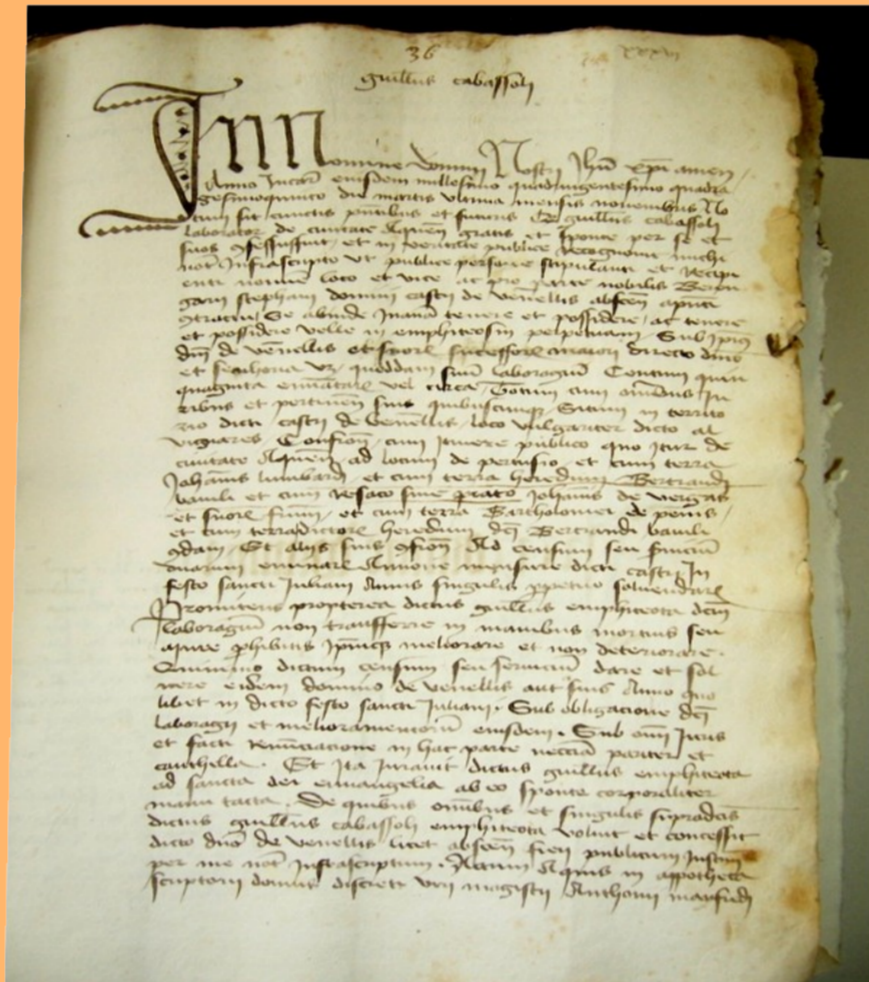 36
xxxvi
guillmus cabassolj
Inn nomine domini Nostri Jhu xpi amen
Anno Incar eiusdem millesimo quadringentesimo quadra
gesimoquinto die martis ultima mensis novembris No
tum sit cunctis pntibus et futuris Q guillmus cabassolj
laborator de civitate Aquen gratis et sponte per se et
suos confessus fuit et in veritate publice recognovit michi
not Infrascripto ut publice persone stipulanti et Recipi
enti nomine loco et vice ac pro parte nobilis Beren
garii stephani domini castri de venellis absen
Se ab inde tenere et possidere ac tenere
et possidere velle in emphiteosim perpetuam Sub
dni de venellis et suor successor maiori directo dnio
et senhoria vz quoddam suum laboragium Centum quin
quaginta eminatar vel circa cum omnibus Ju
ribus et pertinen suis quibuscunque Situm in territo
rio dicti castri de venellis loco vulgariter dicto al
vignares Confron cum Itinere publico quo Itur de
civitate Aquen ad locum de pertusio et cum terra
Johannis et cum terra heredum Bertrandi
bauli et cum Resaco sive prato Johannis de
et suor et cum terra Bartholomei de penis
et cum terra dictor heredum dci Bertrandi bauli
Et aliis suis confron Ad censum seu servicium
duarum eminar Annone mensure dicti castri In
festo sancti Juliani Annis singulis perpetuo solvendar
Promittens propterea dictus guillmus emphiteota dcm
laboragium non transferre in manibus mortuis seu
aliis prohibitis Ipsumque meliorare et non deteriorare
Quinimo dictum censum seu servicium dare et sol
vere eidem domino de venellis aut suis Anno quo
libet in dicto festo sancti Juliani Sub obligacione dci
laboragii et melioramentorum eiusdem Sub omni Juris
et facti renunciacione in hac parte necessaria pariter et
cauthella Et Ita Juravit dictus guillmus emphiteota
ad sancta dei euuangelia ab eo sponte corporaliter
manu tacta De quibus omnibus et singulis supradcis
dictus guillmus cabassolj emphiteota voluit et concessit
dicto dno de venellis licet absen fieri publicum Instrum
per me not Infrascriptum Actum Aquis in appotheca
scriptorii domus discreti viri magistri Anthonii